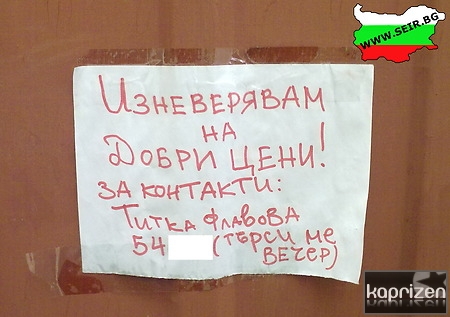 WWW.SEIR.BG
ИЗНЕВЕРЯВАМ
НА
ДОБРИ ЦЕНИ!
ЗА КОНТАКТИ:
ТИТКА ФЛАВОВА
54 (ТЪРСИ МЕ
ВЕЧЕР)
kaprizen